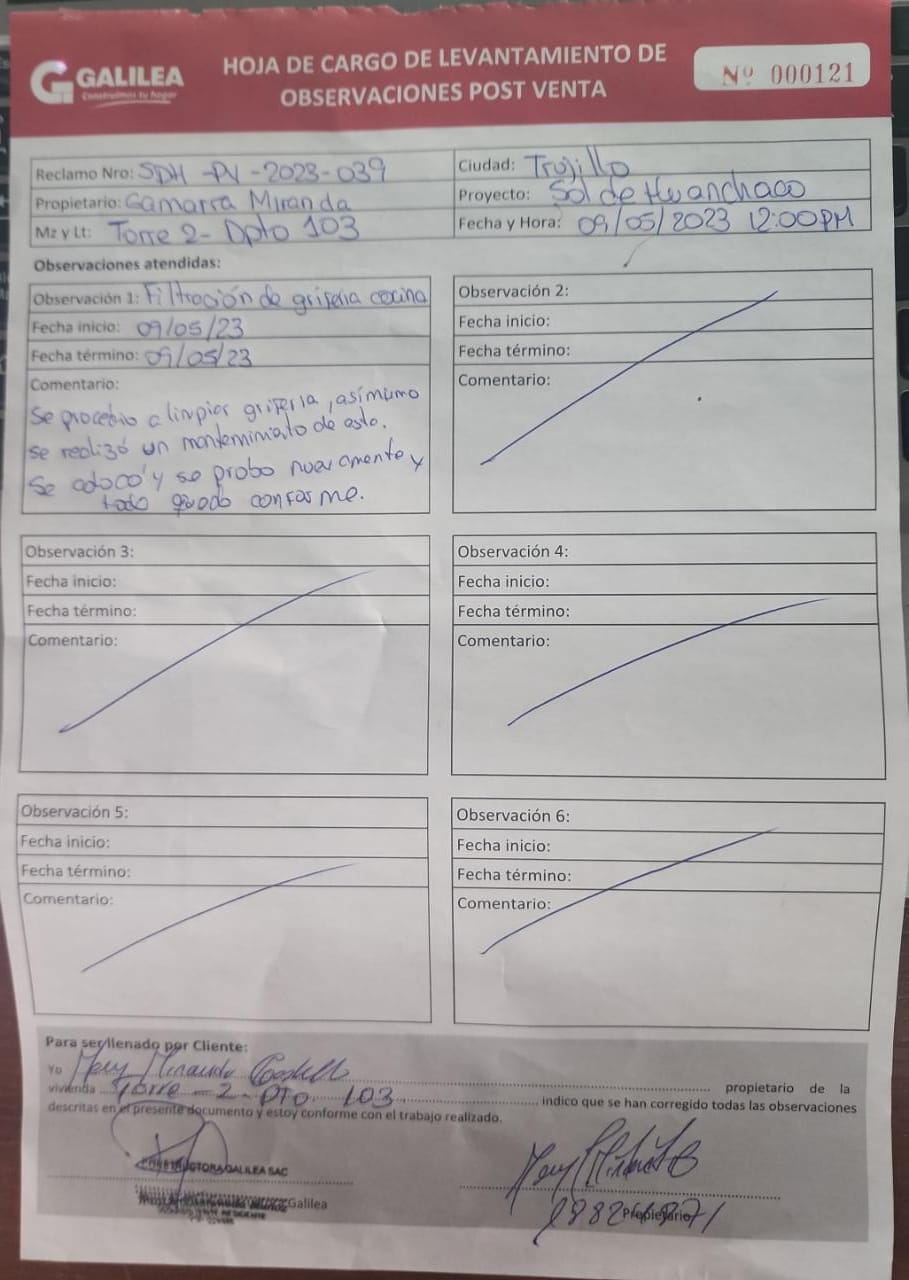 GALILEA
Construimos tu hogar
HOJA DE CARGO DE LEVANTAMIENTO DE
OBSERVACIONES POST VENTA
Nº 000121
Reclamo Nro: SDH-PV-2023-039
Ciudad: Trujillo
Propietario: Gamarra Miranda
Proyecto: Sol de Huanchaco
Mz y Lt: Torre 2- Dpto 103
Fecha y Hora: 09/05/2023 12:00PM
Observaciones atendidas:
Observación 1: Filtración de griferia cocina
Fecha inicio: 09/05/23
Fecha término: 09/05/23
Comentario:
Se procedio a limpiar griferia, asimismo
se realizó un mantenimiento de esta.
Se colocó y se probo nuevamente y
todo quedo conforme.
Observación 2:
Fecha inicio:
Fecha término:
Comentario:
Observación 3:
Fecha inicio:
Fecha término:
Comentario:
Observación 4:
Fecha inicio:
Fecha término:
Comentario:
Observación 5:
Fecha inicio:
Fecha término:
Comentario:
Observación 6:
Fecha inicio:
Fecha término:
Comentario:
Para ser llenado por Cliente:
Yo Miranda propietario de la
vivienda Torre - 2 - DTO. 103 indico que se han corregido todas las observaciones
descritas en el presente documento y estoy conforme con el trabajo realizado.
CONSTRUCTORA GALILEA SAC
Galilea
Propietario